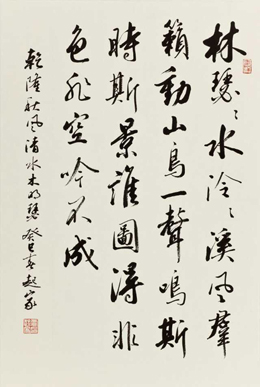 林瑟〻水泠〻溪風羣
籟動山鳥一聲鳴斯
時斯景誰圖得非
色非空吟不成
乾隆秋風清水木明瑟癸巳趙家